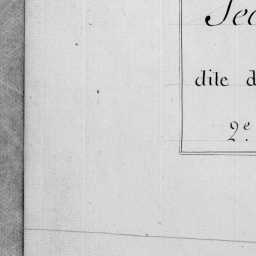 Sec
dite d
2.e